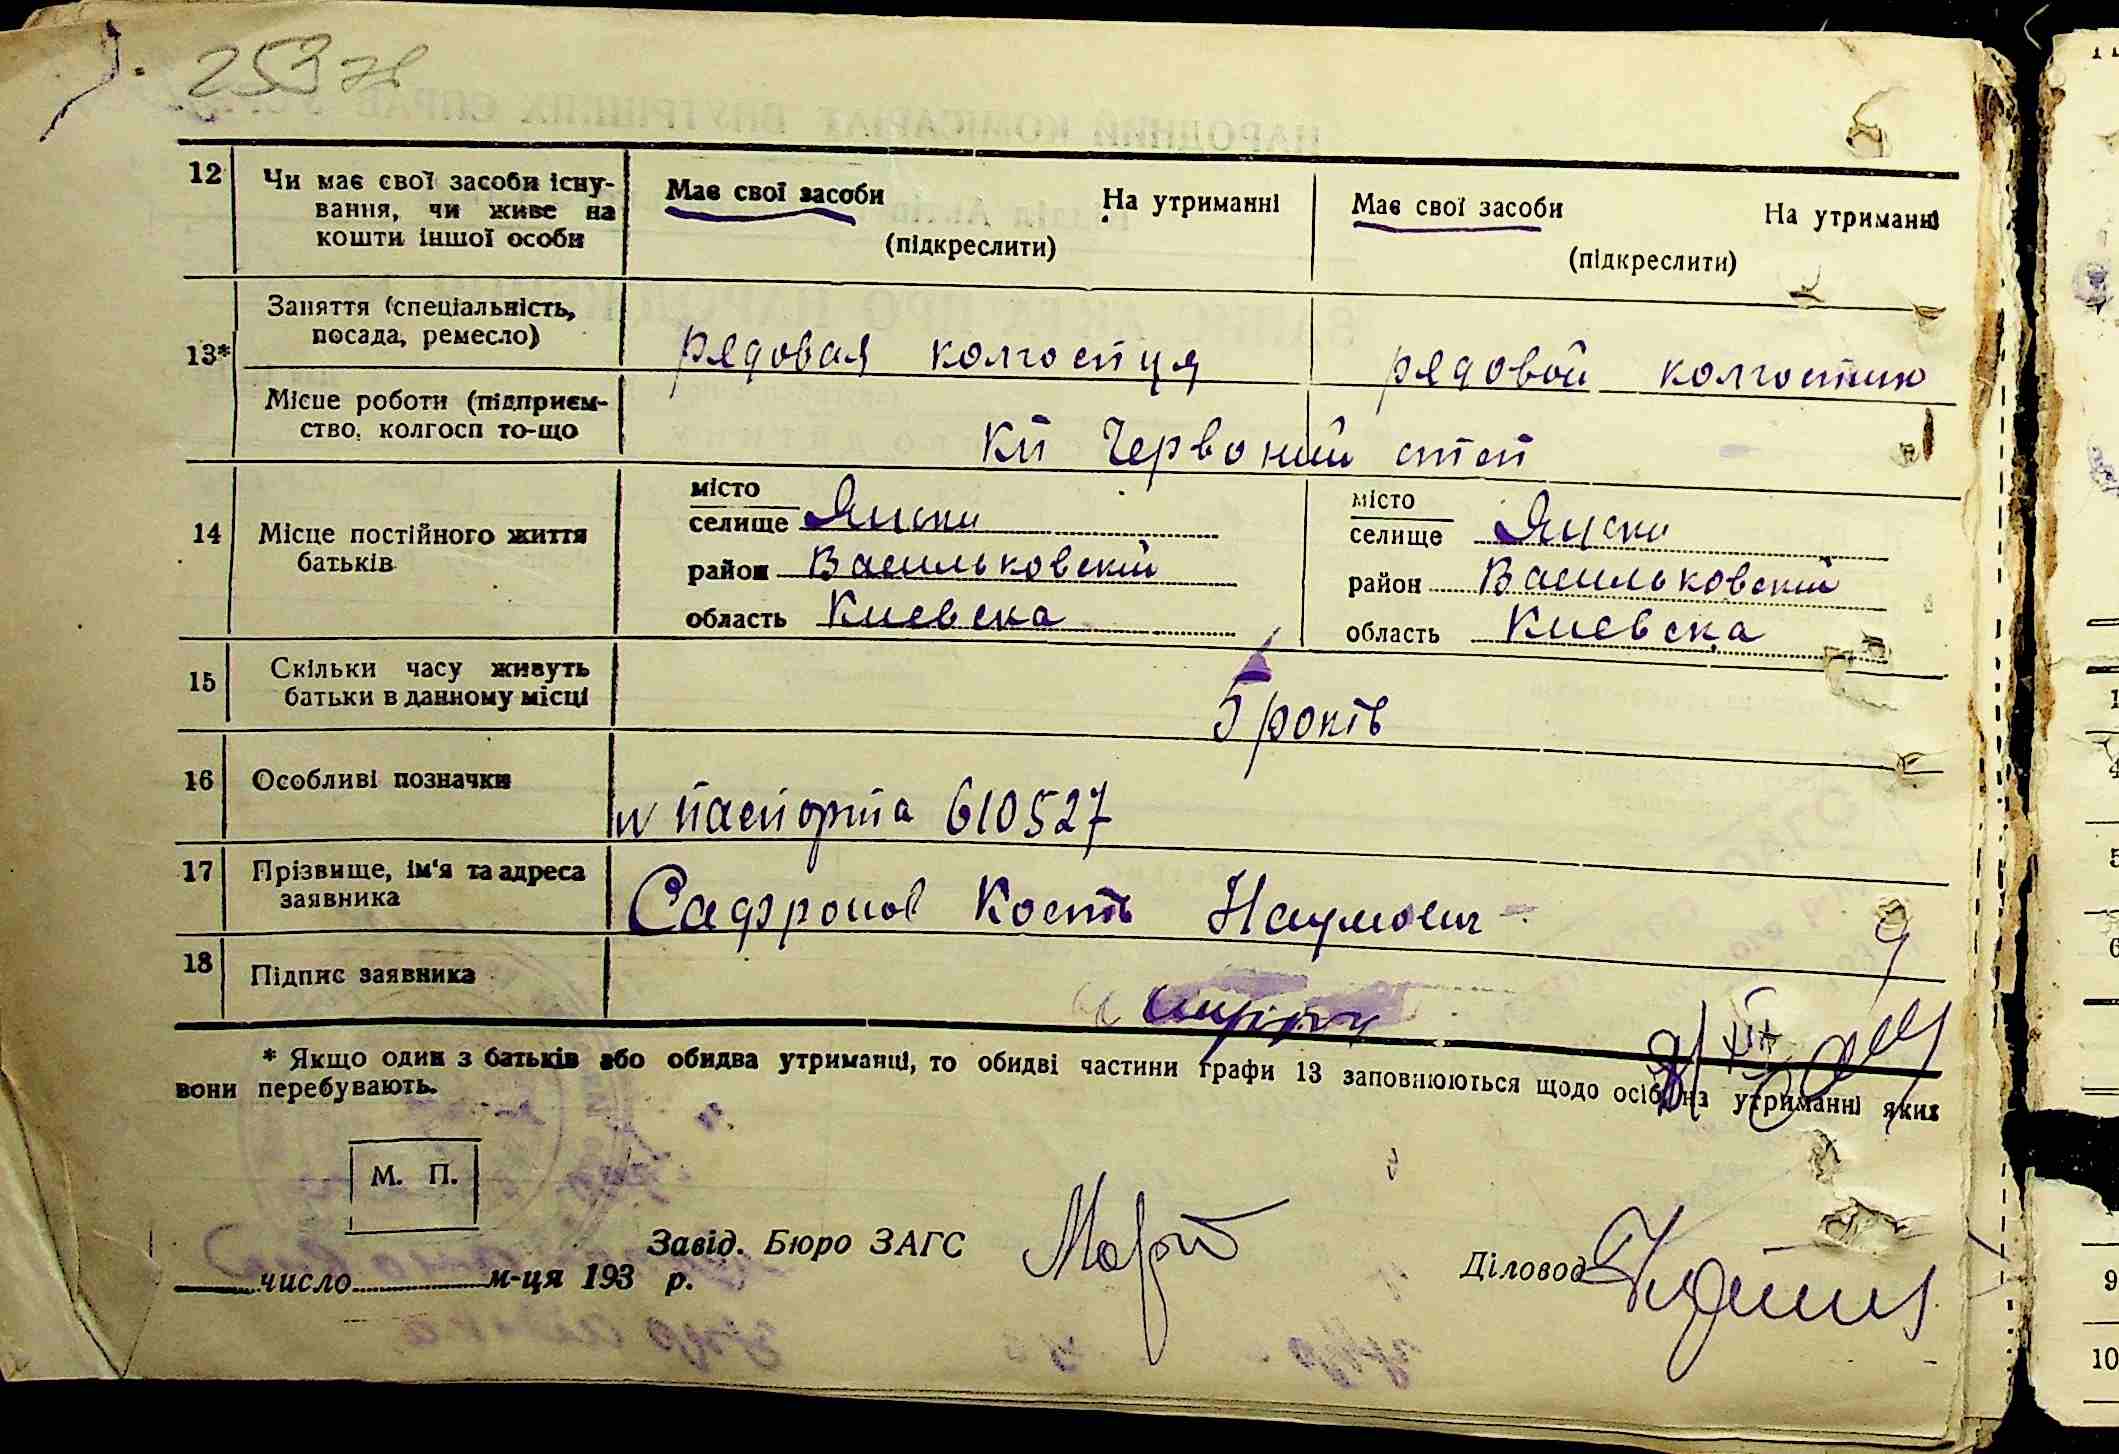 253 зв
12 Чи має свої засоби існу-
вання, чи живе на
кошти іншої особи
Має свої засоби На утриманні
(підкреслити)
Має свої засоби На утриманні
(підкреслити)
13*
Заняття (спеціальність,
посада, ремесло)
рядовая колгоспця
рядовой колгоспник
Місце роботи (підприєм-
ство, колгосп то-що
Кп Червоний степ
14 Місце постійного життя
батьків
місто
селище Яцьки
район Васильковский
область Киевска
місто
селище Яцьки
район Васильковский
область Киевска
15 Скільки часу живуть
батьки в данному місці
5 років
16 Особливі позначки
№ паспорта 610527
17 Прізвище, ім'я та адреса
заявника
Сафронов Кость Наумович
18 Підпис заявника
* Якщо один з батьків або обидва утриманці, то обидві частини графи 13 заповнюються щодо осіб, на утриманні яких
вони перебувають.
М. П.
Завід. Бюро ЗАГС
Діловод
число м-ця 193 р.